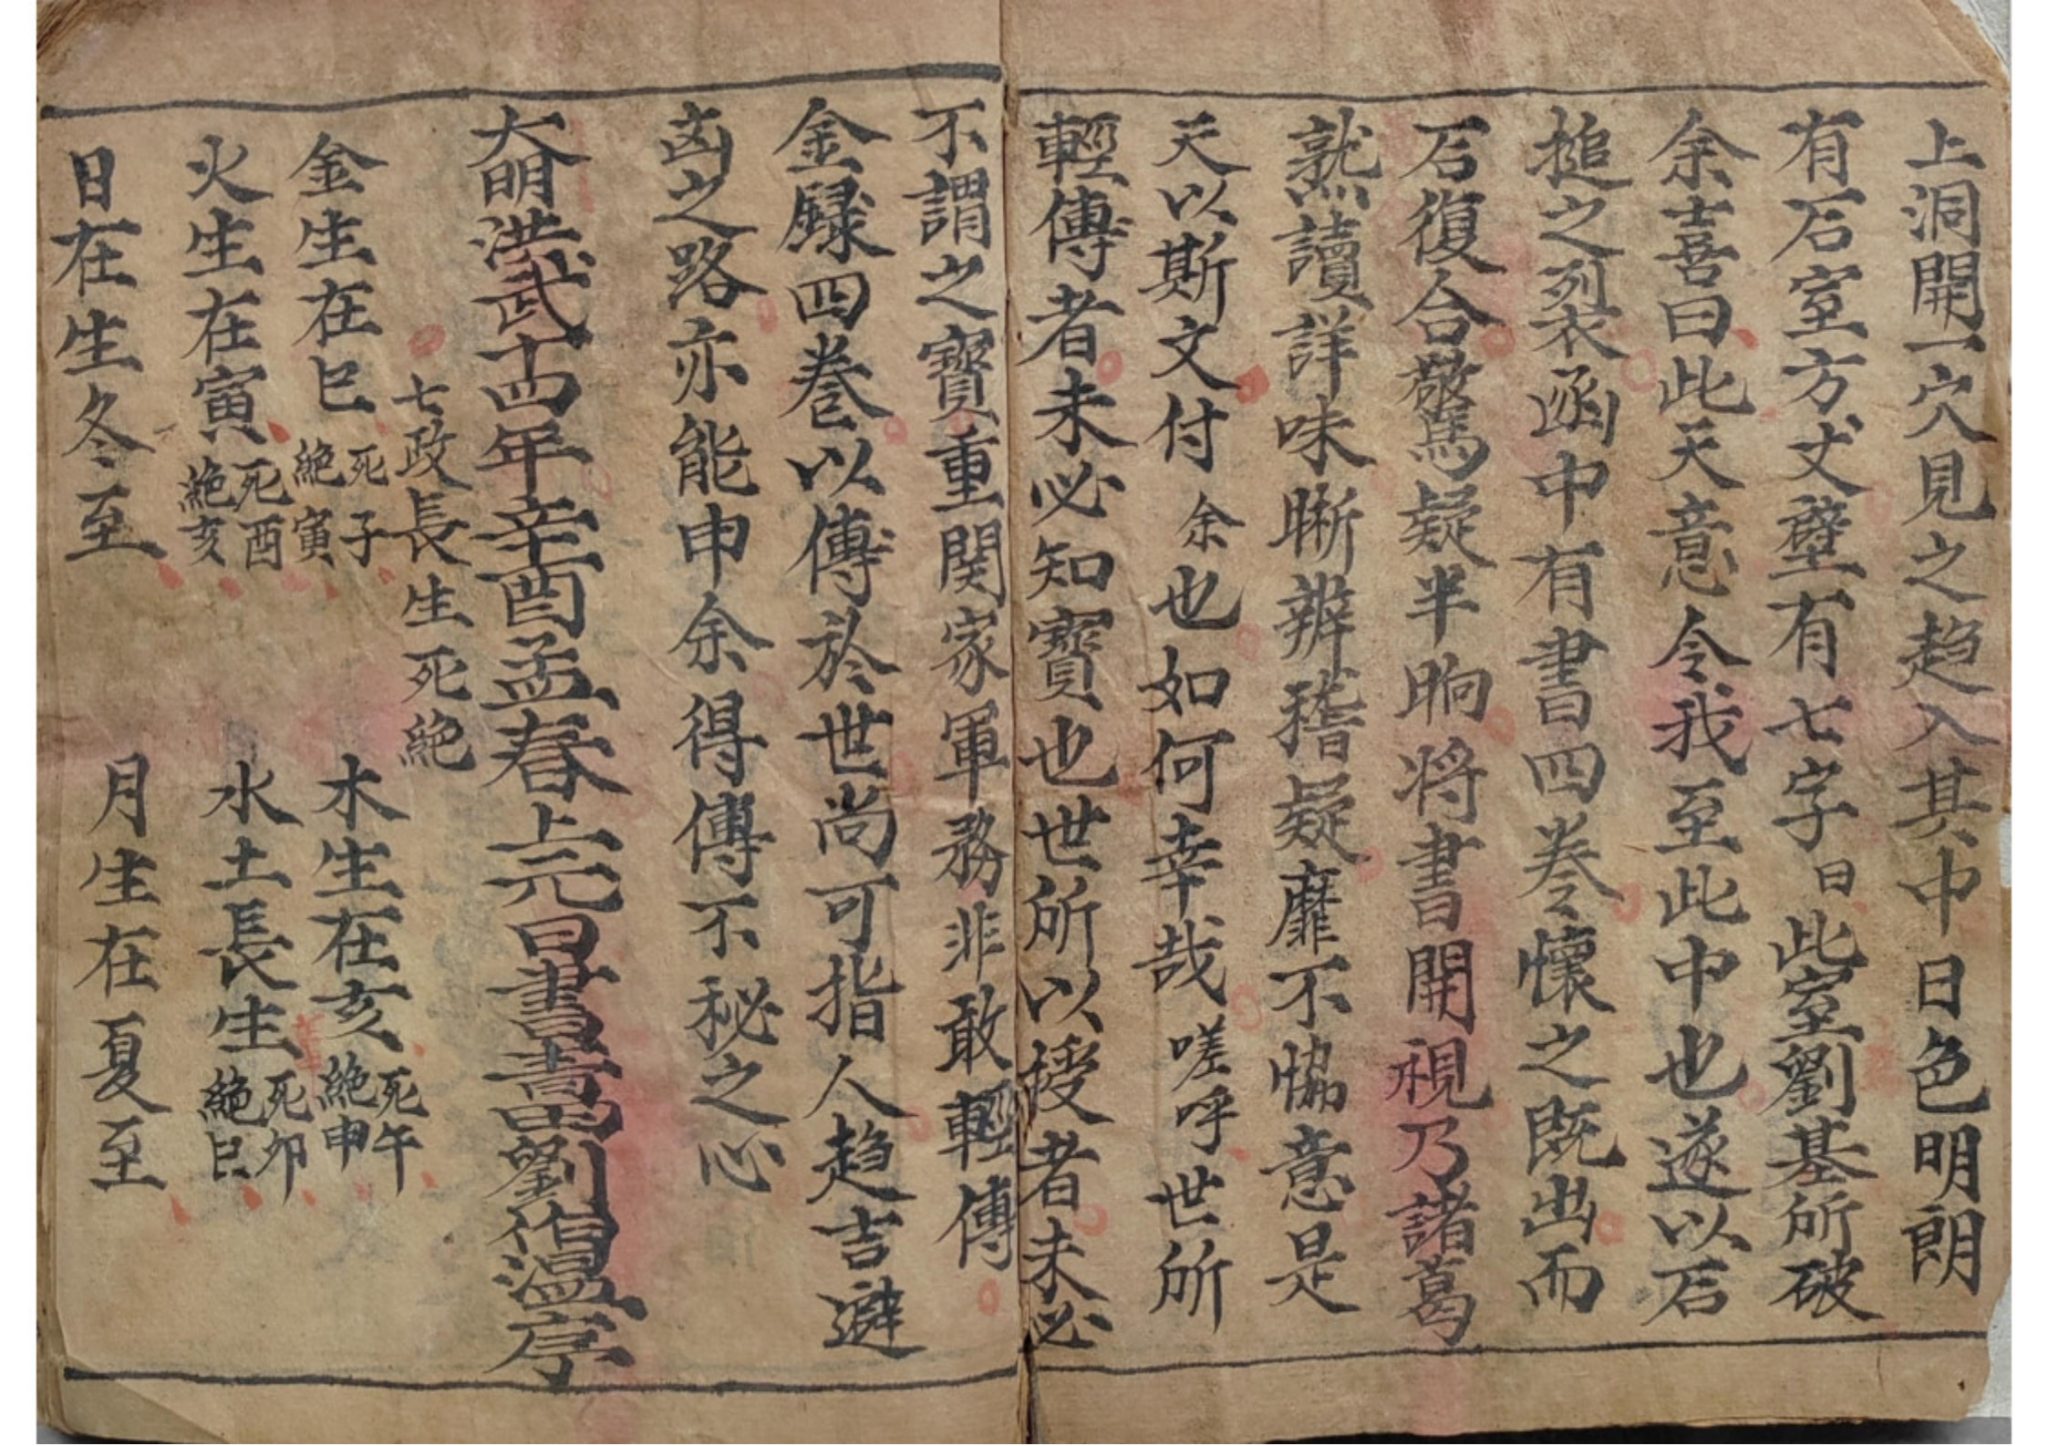 上洞開一穴見之趋入其中日色明朗
有石室方丈壁有七字曰此室劉基所破
余喜曰此天意令我至此中也遂以石
搥之烈衣函中有書四巻懷之既出而
石復合驚疑半晌将書開視乃諸葛
熟讀詳味晰辨稽疑靡不恊意是
天以斯文付余也如何幸哉嗟呼世所
輕傳者未必知寳也世所以授者未必
不謂之寳重関家軍務非敢輕傳
金録四巻以傳於世尚可指人趋吉避
凶之路亦能申余得傳不秘之心
大明洪武十四年辛酉孟春上元日書劉伯温序
七政長生死絶
金生在巳死子絶寅 木生在亥死午絶申
火生在寅死酉絶亥 水土長生死卯絶巳
日在生冬至 月生在夏至